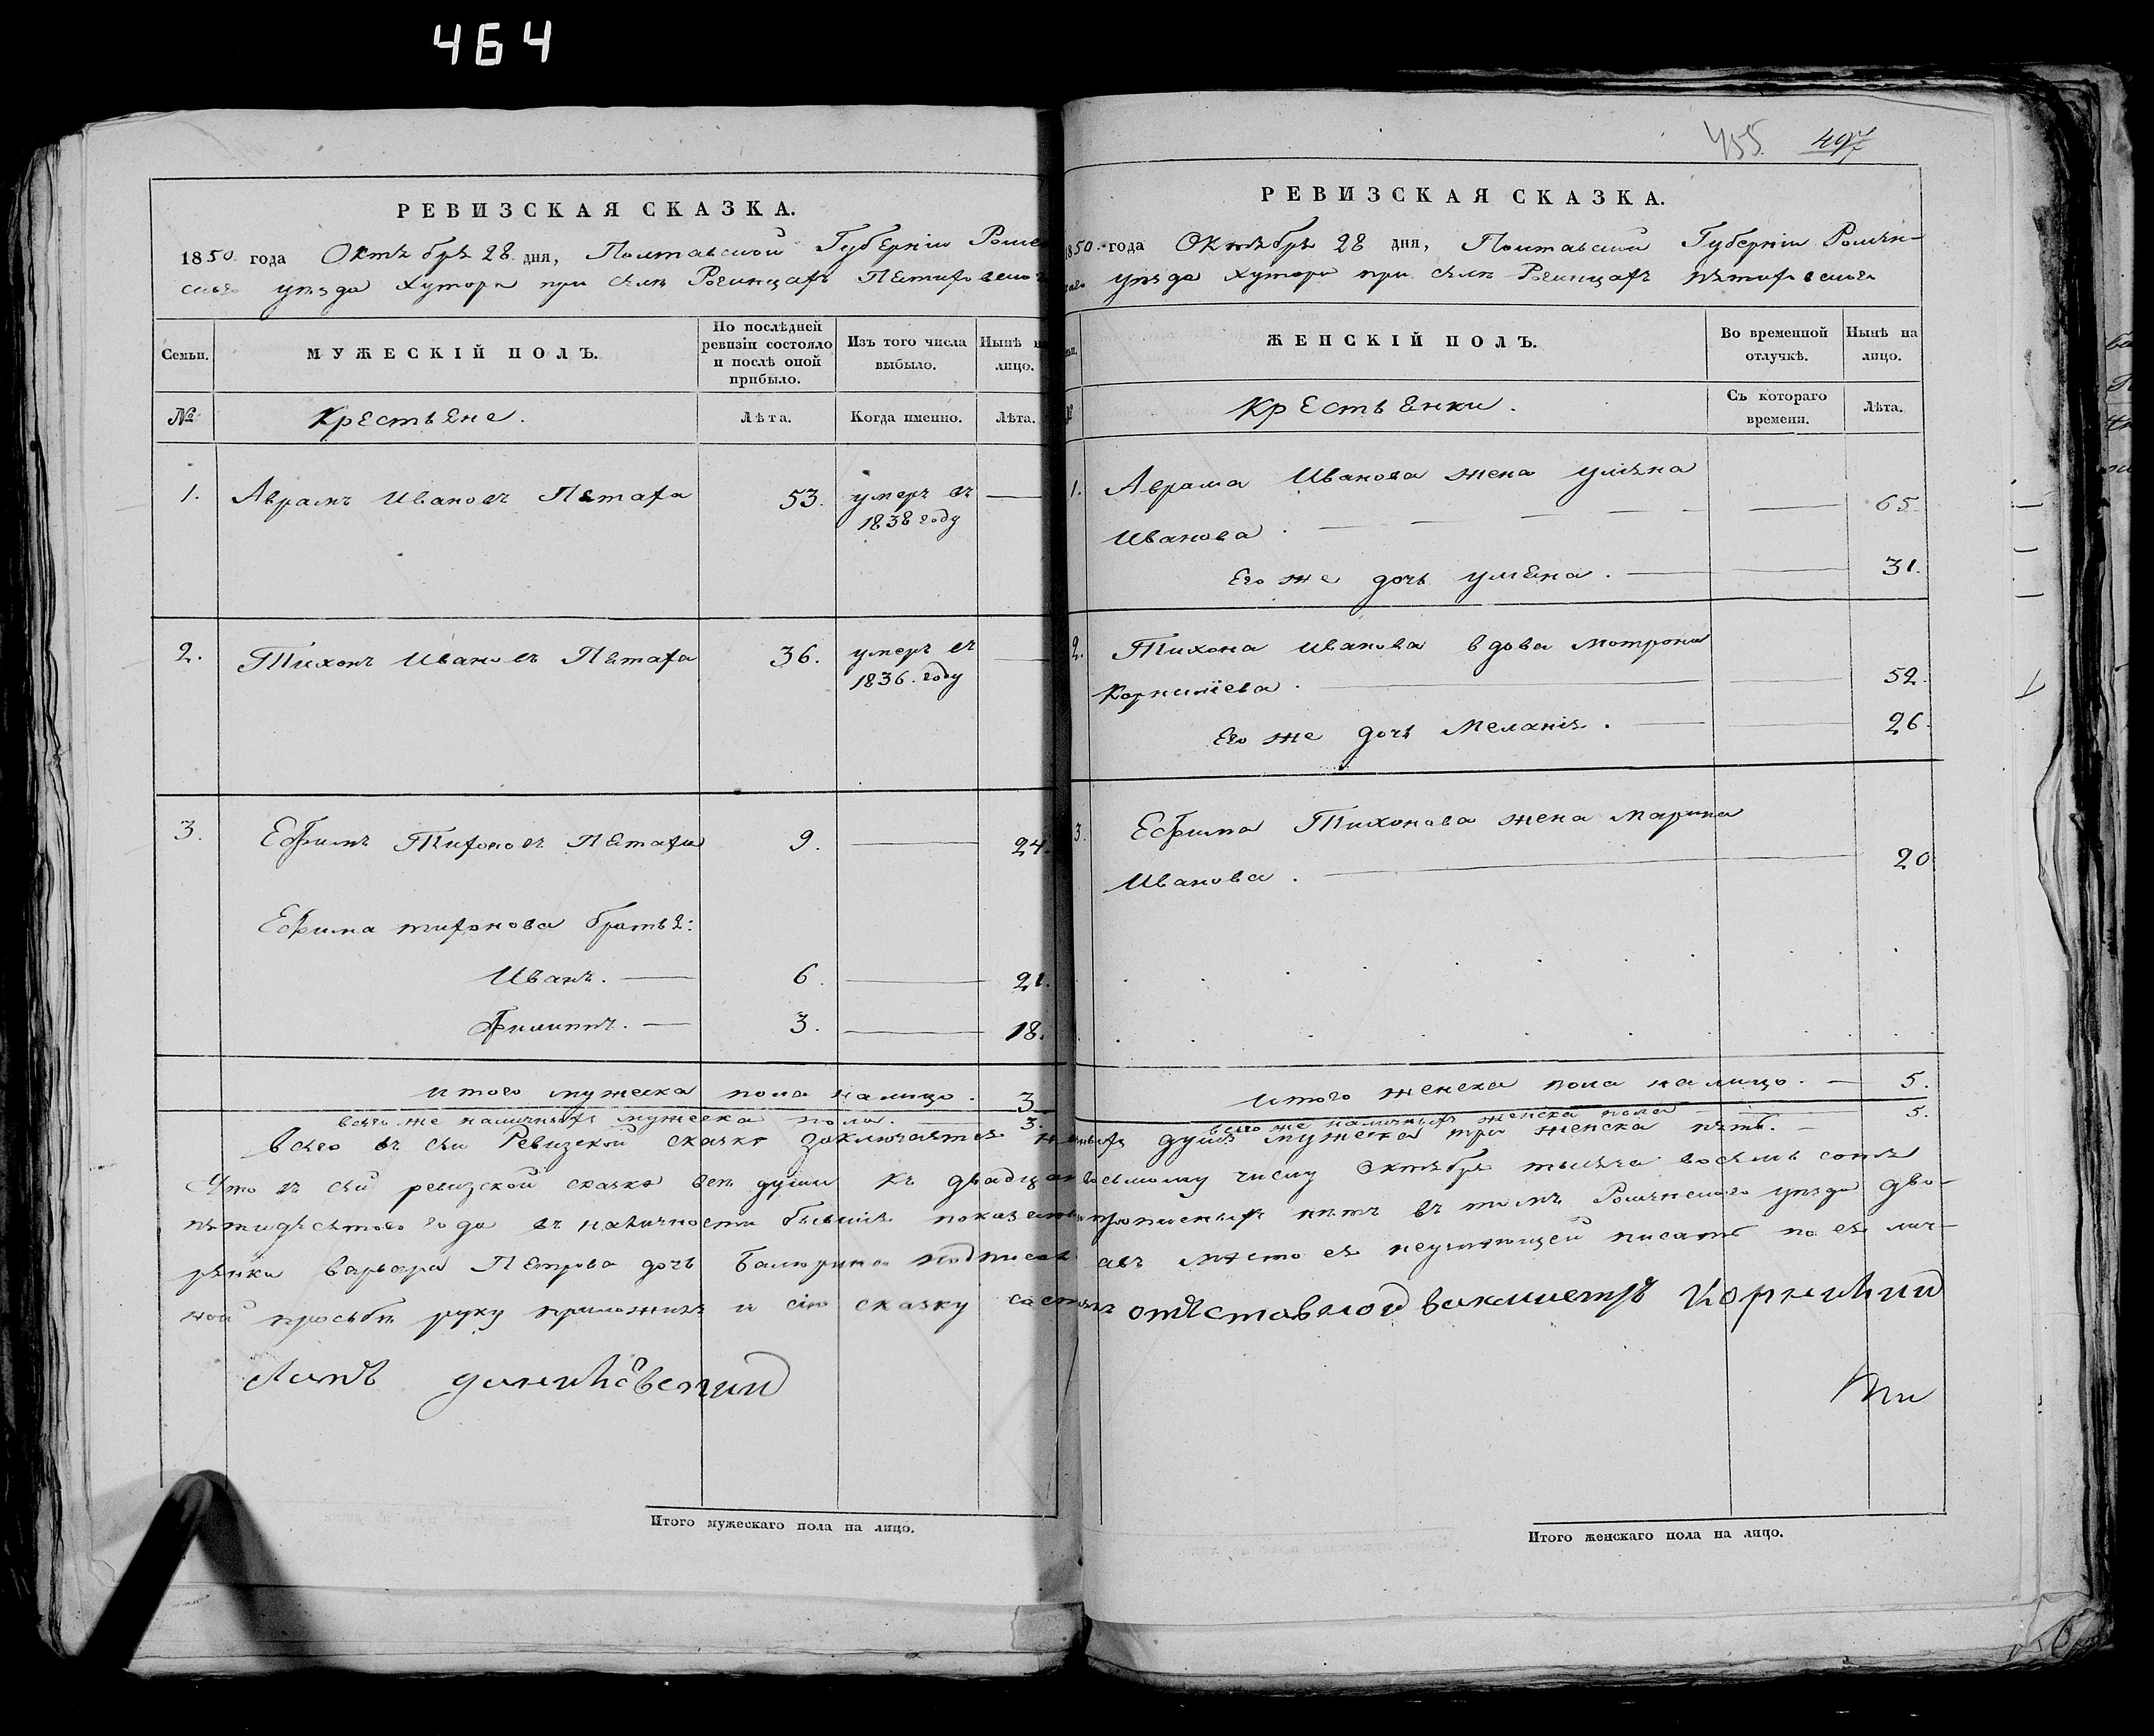 464
РЕВИЗСКАЯ СКАЗКА.
1850 года Октября 28 дня, Полтавской Губерніи Ромен-
скаго уѣзда Хутора при селѣ Рогинцахъ Петаховскаго
Семьи. МУЖЕСКІЙ ПОЛЪ. По послѣдней ревизіи состояло и послѣ оной прибыло. Изъ того числа выбыло. Нынѣ на лицо.
№ Крестьяне. Лѣта. Когда именно. Лѣта.
1. Аврамъ Ивановъ Петаха 53. умеръ въ —
1838 году
2. Тихонъ Ивановъ Петаха 36. умеръ въ —
1836. году
3. Ефимъ Тихоновъ Петаха 9. — 24.
Ефима тихонова братья:
Иванъ. — 6. — 21.
Филиппъ. — 3. — 18.
итого мужеска пола налицо. 3
всего же наличныхъ мужеска пола. — 3.
455 497
РЕВИЗСКАЯ СКАЗКА.
1850. года Октября 28 дня, Полтавской Губерніи Ромен-
скаго уѣзда хутора при селѣ Рогинцахъ петаховскаго
ЖЕНСКІЙ ПОЛЪ. Во временной отлучкѣ. Нынѣ на лицо.
№ Крестьянки. Съ котораго времени. Лѣта.
1. Аврама Иванова жена улияна
Иванова. — — 65
Его же дочь улияна. — — 31.
2. Тихона иванова вдова мотрона
Корнилїева. — — 52.
Его же дочь Меланія. — — 26.
3. Ефима Тихонова жена марина
Иванова. — — 20
итого женска пола на лицо. — 5.
всего же наличныхъ женска пола — 5.
всего въ сей Ревизской сказке заключается наличныхъ душъ мужеска три женска пять. —
Что въ сей ревизской сказке все души къ двадцать восьмому числу Октября тысяча восемь сотъ
пятидесятого года въ наличности бывшіе показаны и прописныхъ нѣтъ въ томъ Роменскаго уѣзда дво-
рянки варвара Петрова дочь подписалавъ место ея неумеющей писать по ея лич-
ной просьбѣ руку приложилъ и сію сказку отставной вахмистръ Корнилий
Итого мужескаго пола на лицо.
Итого женскаго пола на лицо.